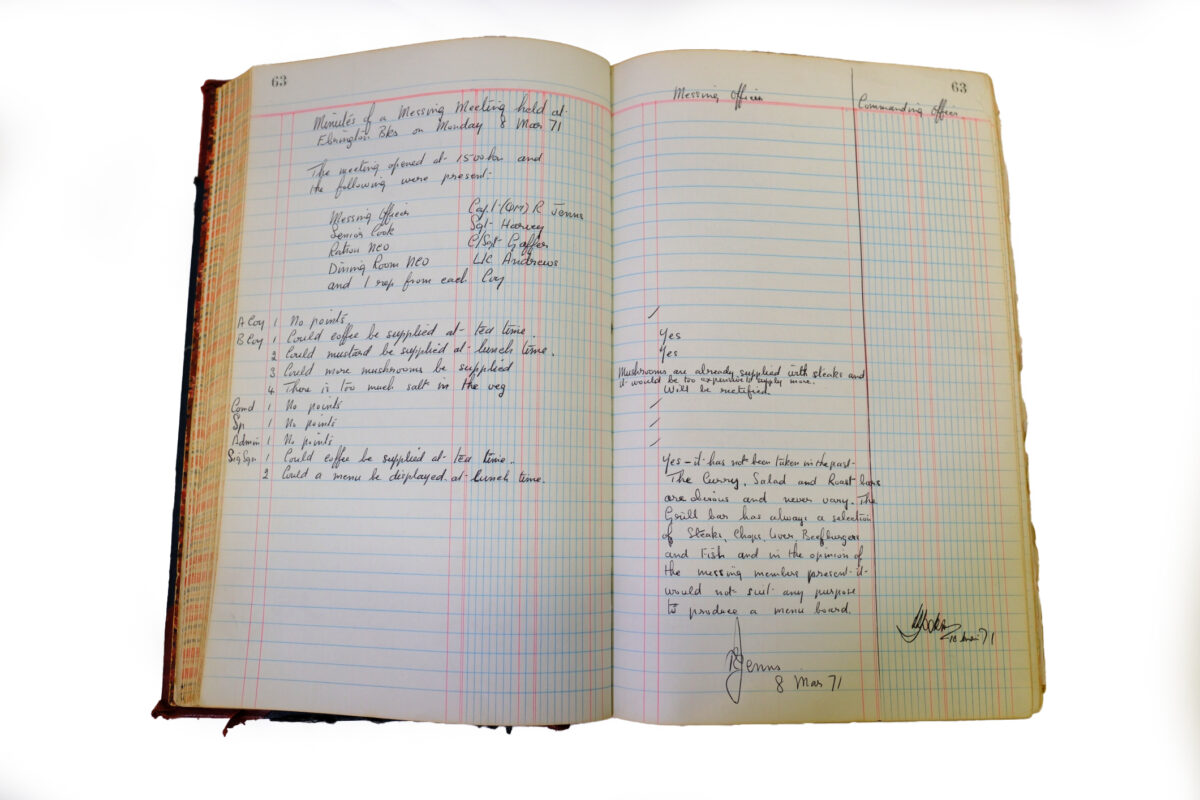 63
Minutes of a Messing Meeting held at
Ebrington Bks on Monday 8 Mar 71
The meeting opened at 1500hr and
the following were present:
Messing Officer Capt (QM) R Jenns
Senior Cook Sgt Harvey
Ration NCO C/Sgt Gaffer
Dining Room NCO L/C Andrews
and 1 rep from each Coy
A Coy 1 No points
B Coy 1 Could coffee be supplied at tea time.
2 Could mustard be supplied at lunch time.
3 Could more mushrooms be supplied
4 There is too much salt in the veg
Comd 1 No points
Sp 1 No points
Admin 1 No points
Sig Sqn 1 Could coffee be supplied at tea time.
2 Could a menu be displayed at lunch time.
63
Messing Officer
Commanding Officer
Yes
Yes
Mushrooms are already supplied with steaks and
it would be too expensive to supply more.
Will be rectified
Yes – it has not been taken in the past.
The Curry, Salad and Roast bars
are obvious and never vary. The
Grill bar has always a selection
of Steaks, Chops, Liver, Beefburgers
and Fish and in the opinion of
the messing members present it
would not suit any purpose
to produce a menu board.
R Jenns
8 Mar 71
10 Mar 71